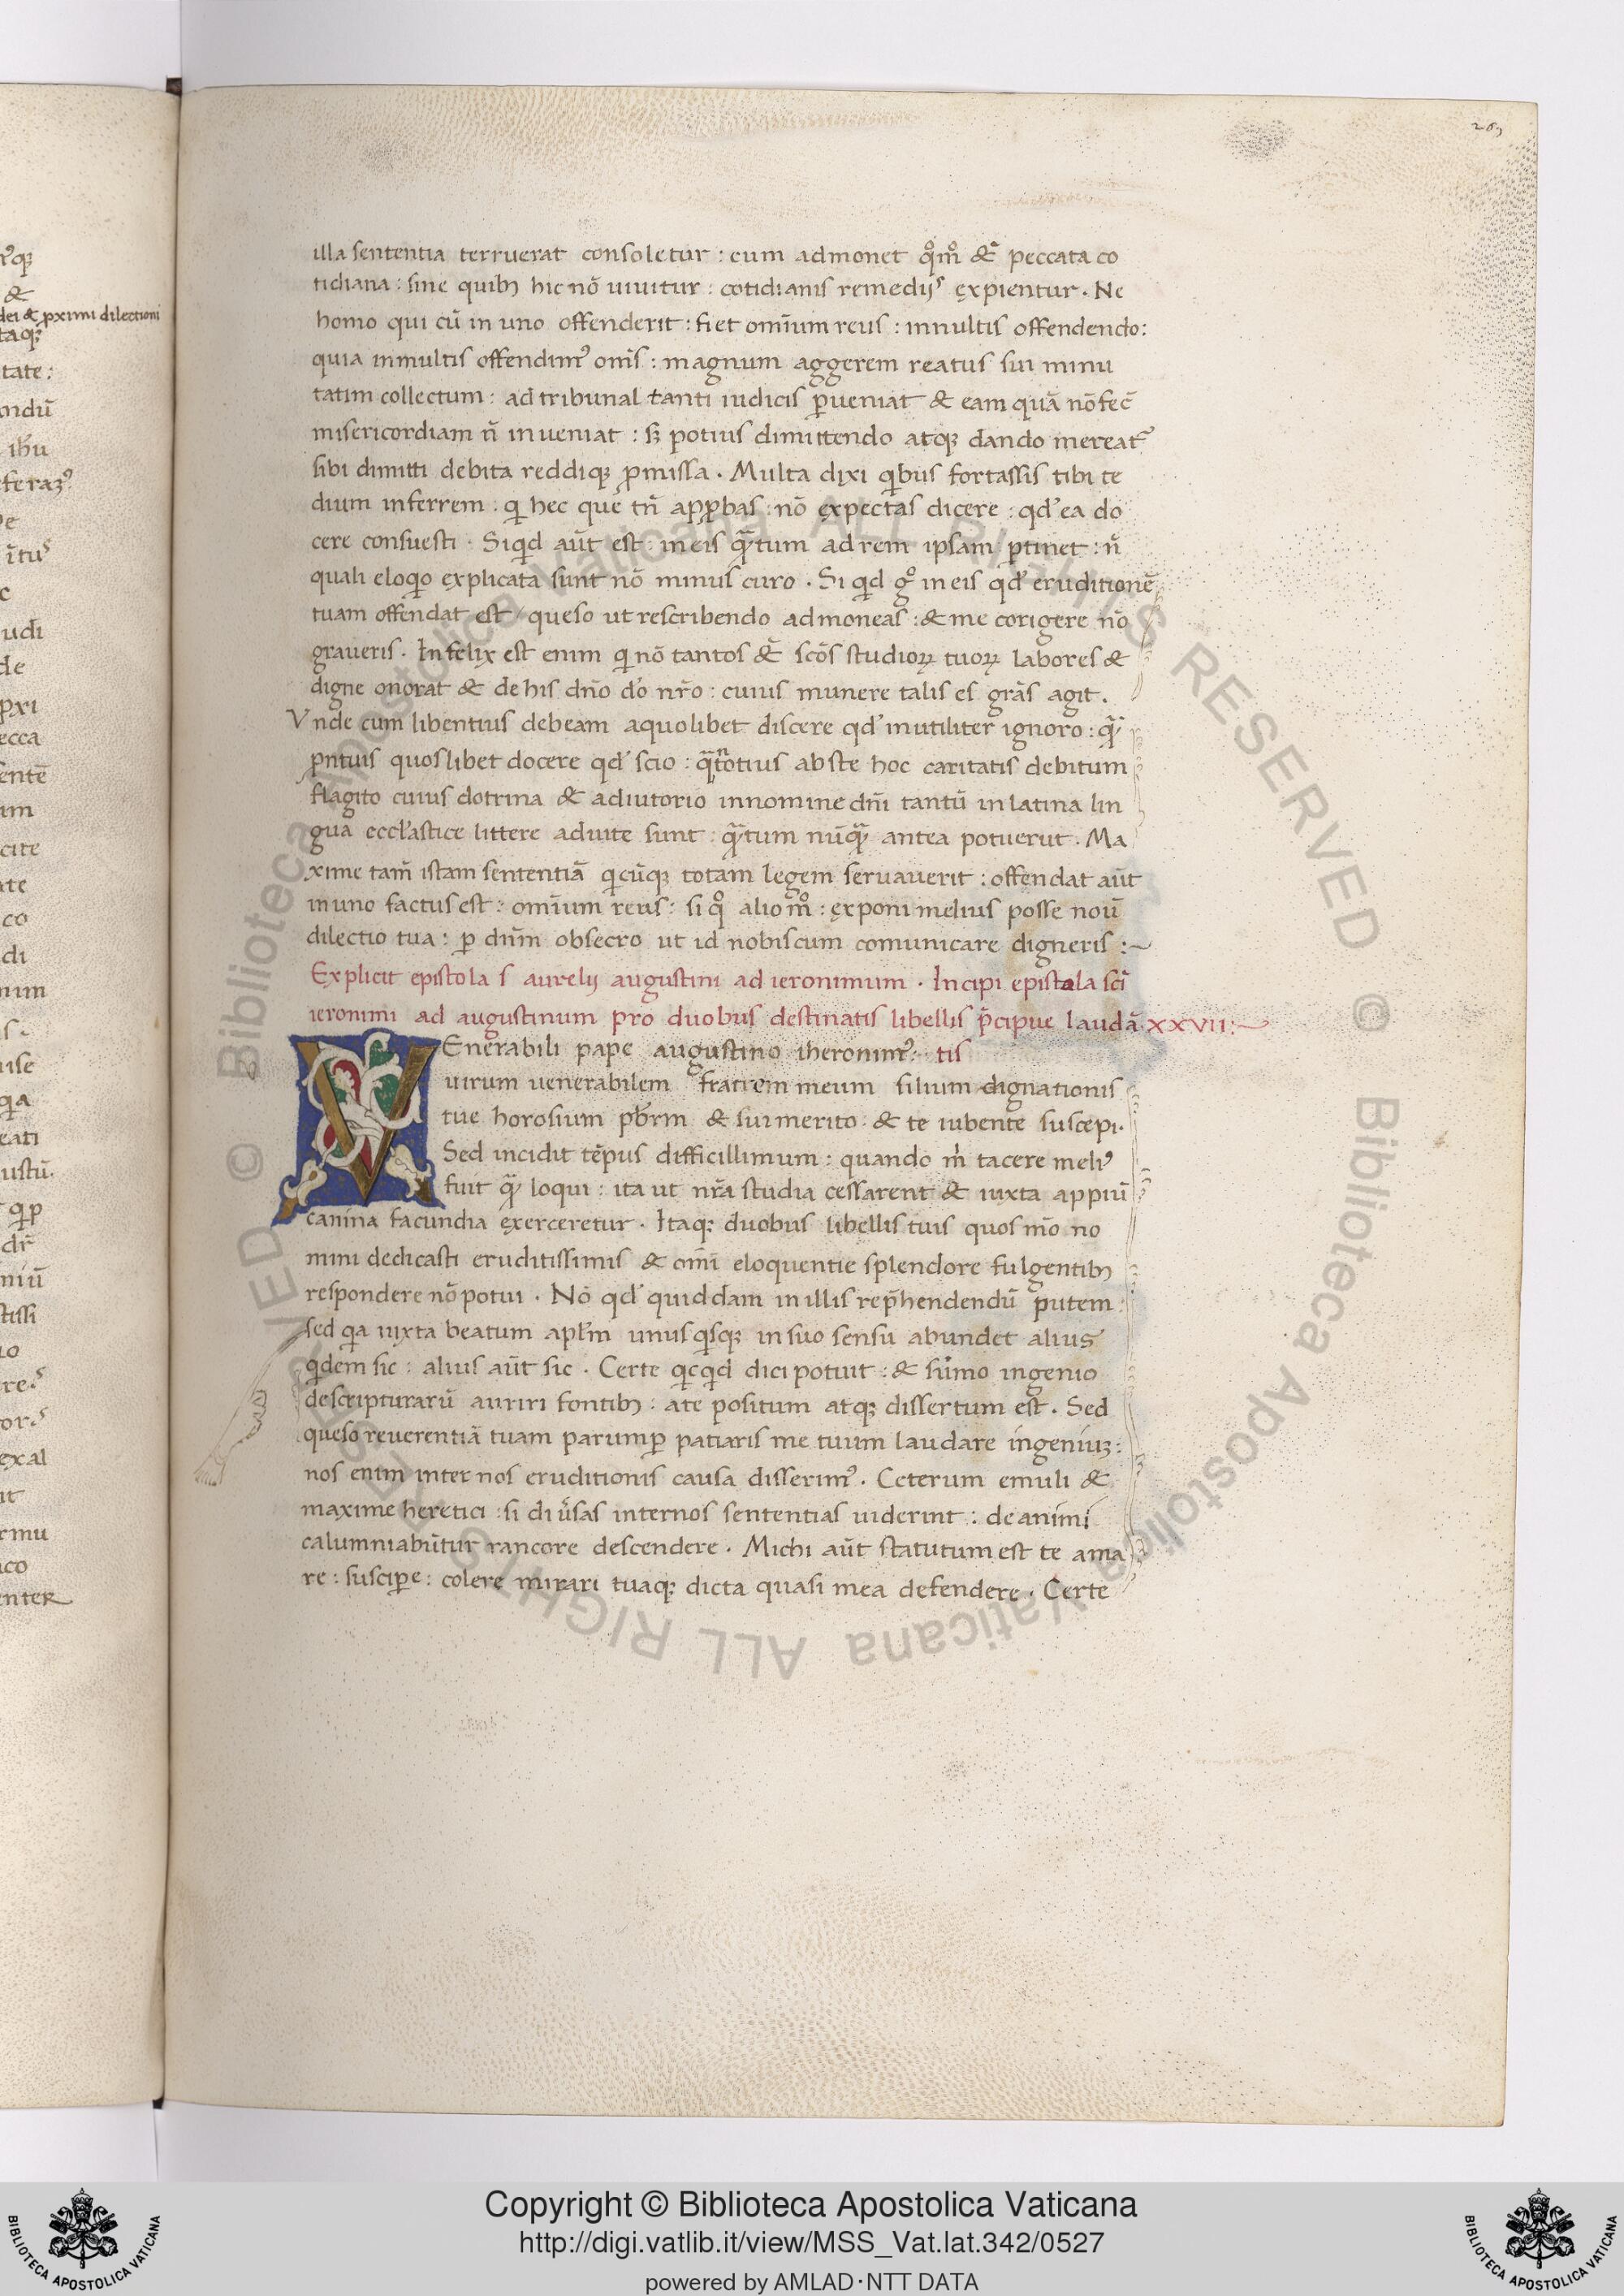 263
illa sententia terruerat consoletur : cum admonet qͦmͦ & peccata co
tidiana : sine quibꝫ hic nō uiuitur : cotidianis remedijs ęxpientur . Ne
homo qui cū in uno offenderit : fiet omīum reus : inmultis offendendo :
quia inmultis offendimꝰ om̄s : magnum aggerem reatus sui minu
tatim collectum : ad tribunal tanti iudicis ꝑueniat & eam quā nō fec̄
misericordiam n̄ inueniat : sꝫ potius dimittendo atqꝫ dando mereat᷑
sibi dimitti debita reddiqꝫ ꝓmissa . Multa dixi qibus fortassis tibi te
dium inferrem : qi hec que tn̄ apꝓbas : nō ęxpectas dicere : qd' ea do
cere consuesti . Siqid aūt est in eis qᷓtum ad rem ipsam ꝑtinet : n̄
quali eloqio ęxplicata sunt nō minus curo . Si qid gͦ in eis qd' eruditionē
tuam offendat est / queso ut rescribendo admoneas : & me corigere nō
graueris . Infelix est enim qi nō tantos & scōs studioꝝ tuoꝝ labores &
digne onorat & de his dn̄o dō nr̄o : cuius munere talis es grās agit .
Vnde cum libentius debeam aquolibet discere qd' inutiliter ignoro : qᷓ
pntius quoslibet docere qd' scio : qᷓtotius abs te hoc caritatis debitum
flagito cuius dotrina & adiutorio innomine dn̄i tantū in latina lin
gua eccl'astice littere adiute sunt : qᷓtum nūqᷓ antea potuerut . Ma
xime tam̄ istam sententiā qicūqꝫ totam legem seruauerit : offendat aūt
in uno factus est : omīum reus : si qͦ alio mͦ : ęxponi melius posse nouī
dilectio tua : ꝑ dn̄m obsecro ut id nobiscum comunicare digneris :~
Explicit epistola s aurelij augustini ad ieronimum . Incipi epistola sci
ieronimi ad augustinum pro duobus destinatis libellis p̄cipue laudā . XXVII :~
VEnerabili pape augustino iheronimꝰ . tis
uirum uenerabilem fratrem meum silium dignationis
tue horosium pb̄rm & sui merito : & te iubente suscepi .
Sed incidit tēpus difficillimum : quando m̄ tacere meliꝰ
fuit qᷓ loqui : ita ut nr̄a studia cessarent & iuxta appiū
canina facundia ęxerceretur . Itaqꝫ duobus libellis tuis quos mō no
mini dedicasti eruditissimis & om̄i eloquentie splendore fulgentibꝫ
respondere nō potui . Nō qd' quiddam in illis rep̄hendendū putem :
sed qia iuxta beatum apl'm unusqisqꝫ in suo sensu abundet alius
qidem sic : alius aūt sic . Certe qicqid dici potuit : & sūmo ingenio
descripturarū auriri fontibꝫ : ate positum atqꝫ dissertum est . Sed
queso reuerentiā tuam parumꝑ patiaris me tuum laudare ingeniuꝫ :
nos enim inter nos eruditionis causa disserimꝰ . Ceterum emuli &
maxime heretici : si diu̾sas internos sententias uiderint : de animi
calumniabūtur rancore descendere . Michi aūt statutum est te ama
re : suscipere : colere mirari tuaqꝫ dicta quasi mea defendere . Certe
&
dei & ꝓximi dilectioni
tate :
ndū
ihu
de
pxi
ecca
cite
co
di
exal
enter
Copyright © Biblioteca Apostolica Vaticana
http://digi.vatlib.it/view/MSS_Vat.lat.342/0527
powered by AMLAD·NTT DATA
BIBLIOTECA APOSTOLICA VATICANA
BIBLIOTECA APOSTOLICA VATICANA
© Biblioteca Apostolica Vaticana ALL RIGHTS RESERVED © Biblioteca Apostolica Vaticana ALL RIGHTS RESERVED